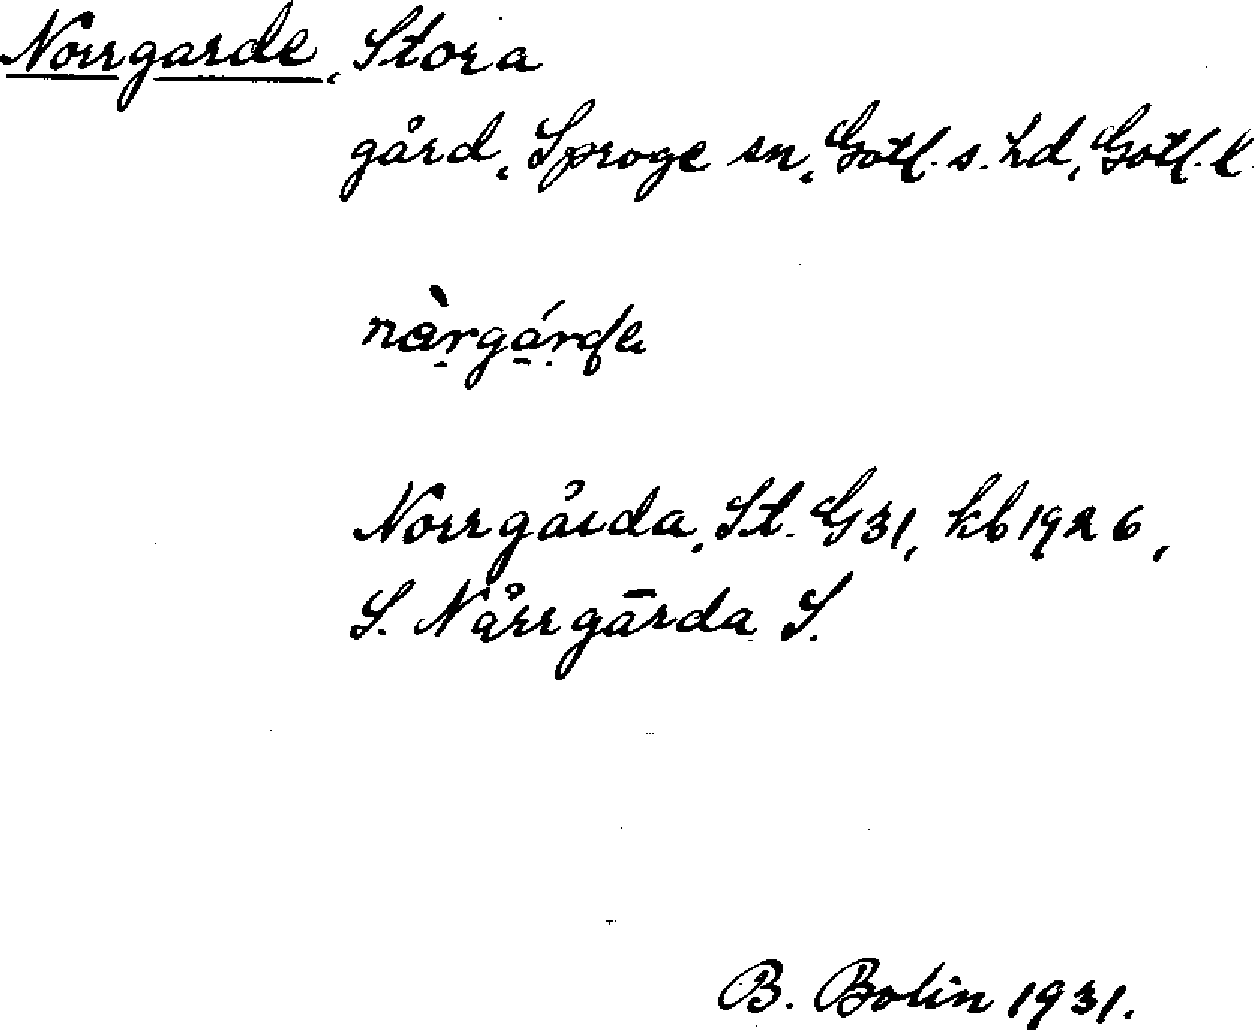 Norrgarde, Stora
gård, Sproge sn, Gotl. s. hd, Gotl. l.
Norrgårda, St. G31, kb 1926,
S. Nårrgārda S.
B. Bolin 1931.